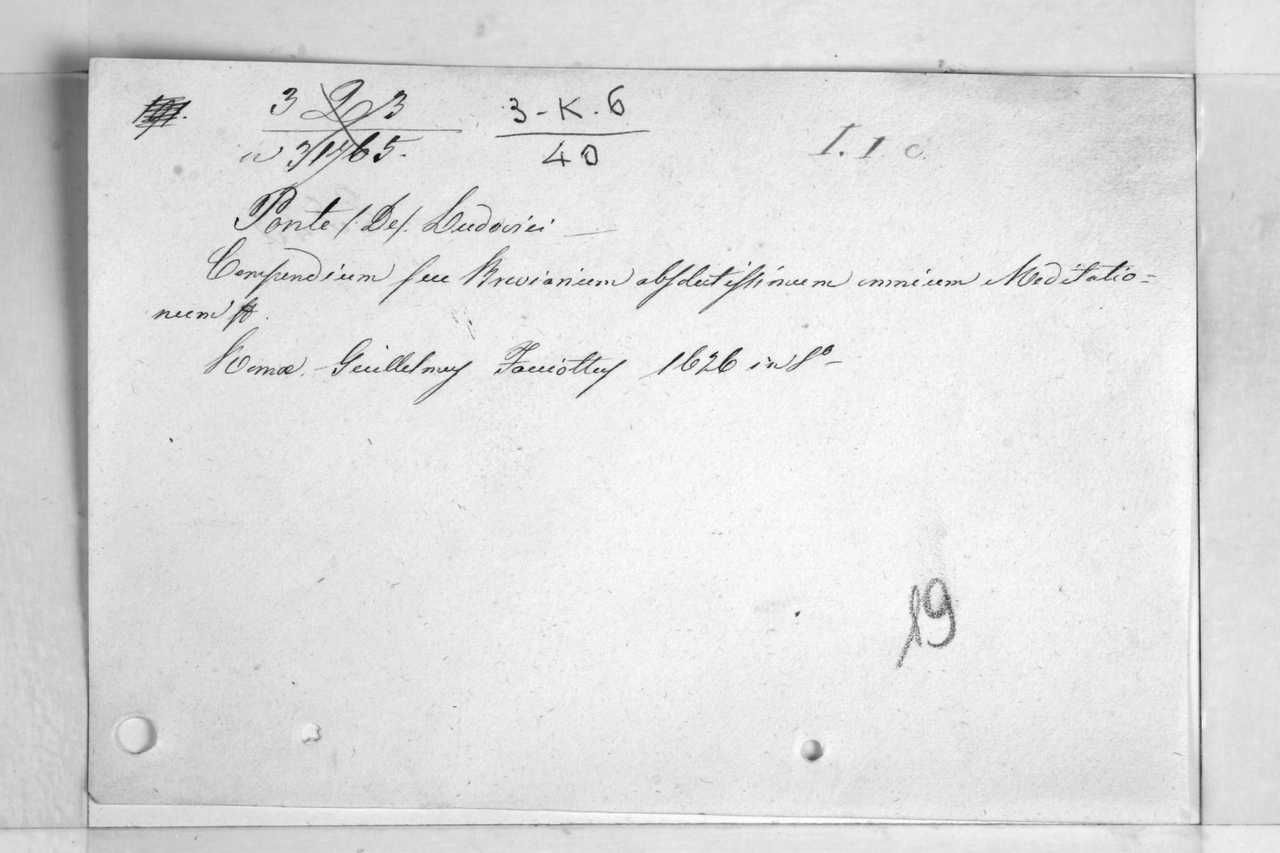 3 2 3
3-K.6
a 3/1765.
40
I. 1. c.
Ponte /: De/. Ludovici —
Compendium seu Breviarium absolutissimum omnium Meditatio-
num
Romæ. - Guillelmus Facciottus 1626 in 8º -
19